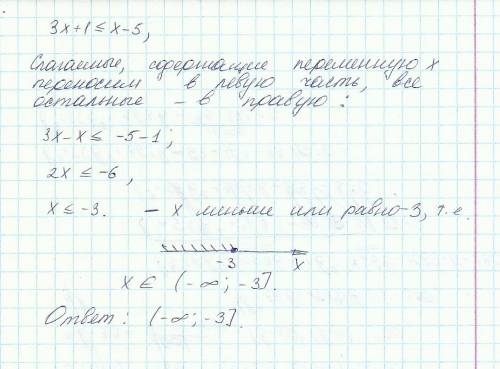 3x+1≤x-5,
Слагаемые, содержащие переменную x
переносим в левую часть, все
остальные – в правую:
3x-x≤ -5-1;
2x≤-6,
x≤-3. – x меньше или равно-3, т.е.
-3 x
x∈ (-∞; -3].
Ответ: (-∞; -3].